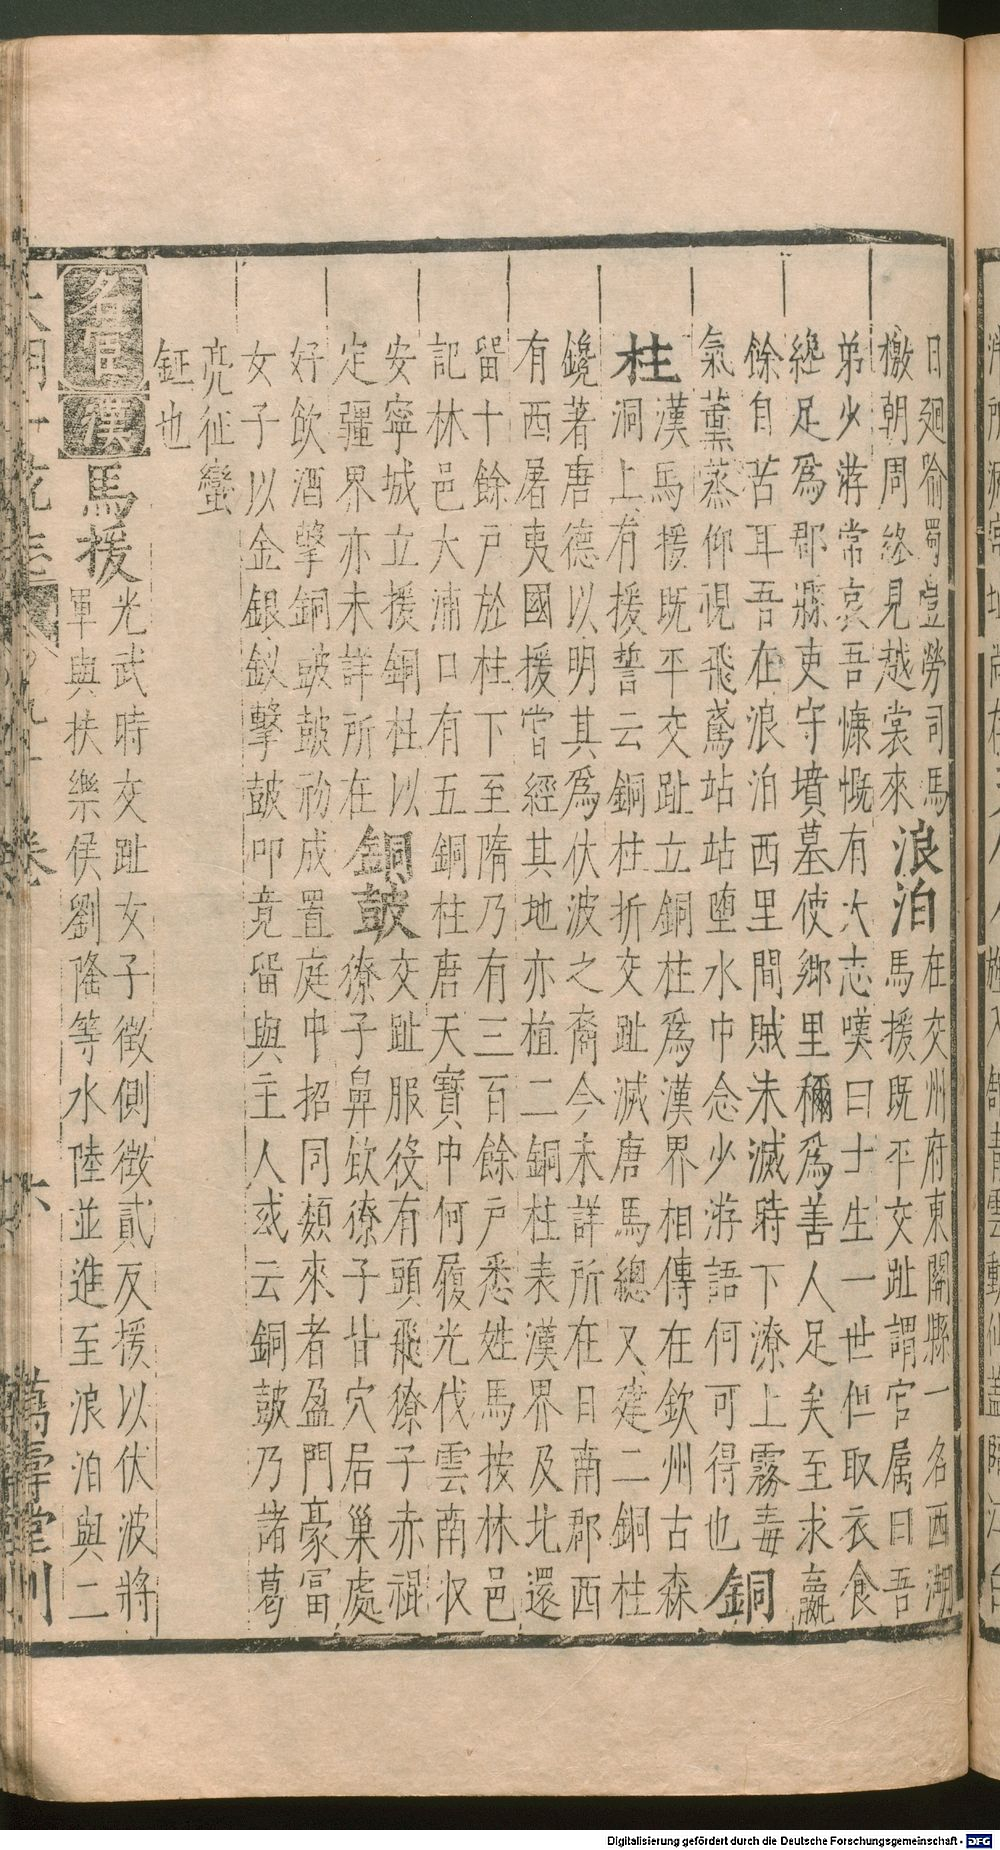 日廻踰蜀豈勞司馬
檄朝周終見越裳來
浪泊
在交州府東關縣一名西湖
馬援既平交趾謂官属曰吾
弟少游常哀吾慷慨有大志嘆曰士生一世但取衣食
纔足爲郡縣吏守墳墓使鄉里稱爲善人足矣至求贏
餘自苦耳吾在浪泊西里間賊未滅時下潦上霧毒
氣薰蒸仰視飛鳶站站墮水中念少游語何可得也
銅
柱
漢馬援既平交趾立銅柱爲漢界相傳在欽州古森
洞上有援誓云銅柱折交趾滅唐馬總又建二銅柱
鑱著唐德以明其爲伏波之裔今未詳所在日南郡西
有西屠夷國援甞經其地亦植二銅柱表漢界及北還
留十餘戶於柱下至隋乃有三百餘戶悉姓馬按林邑
記林邑大浦口有五銅柱唐天寶中何履光伐雲南収
安寧城立援銅柱以
定疆界亦未詳所在
銅鼓
交趾服役有頭飛獠子赤裩
獠子鼻飲獠子廿穴居巢處
好飲酒擊銅鼓鼓初成置庭中招同類來者盈門豪冨
女子以金銀釵擊鼓叩竟留與主人或云銅鼓乃諸葛
亮征蠻
鉦也
名宦
漢
馬援
光武時交趾女子徵側徵貳反援以伏波將
軍與扶樂侯劉隆等水陸並進至浪泊與二
卷
六
萬壽堂刊
Digitalisierung gefördert durch die Deutsche Forschungsgemeinschaft - DFG